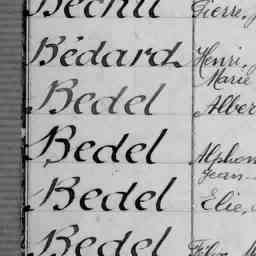 Pierre, J
Bédard Henri,
Marie
Bedel Alber
Bedel Alphon
Jean-
Bedel Elie,
Bedel